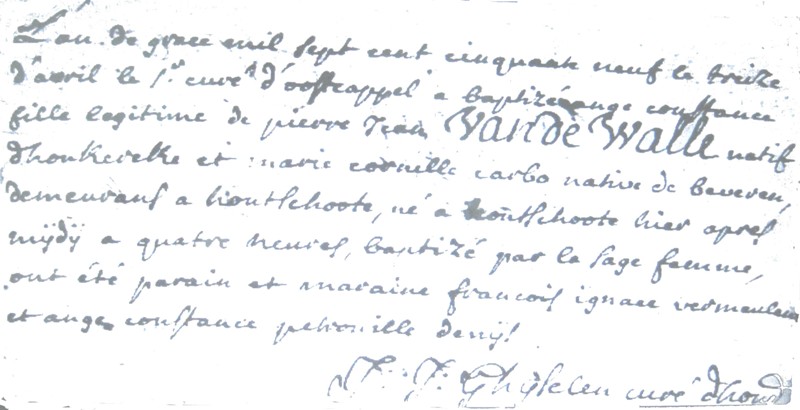 L'an de grace mil sept cent cinquante neuf le treize
d'avril le Sr curé d'oostcappel a baptizé ange constance
fille legitime de pierre Jean Van de Walle natif
dhonkercke et marie cornille carbo native de beveren,
demeurans a hontschoote, né a hontschoote hier apres
mÿdÿ a quatre heures, baptizé par la sage femme,
ont été parain et maraine francois ignace vermeulen
et ange constance petronille denÿs
J: J: Ghÿselen curé d'hond